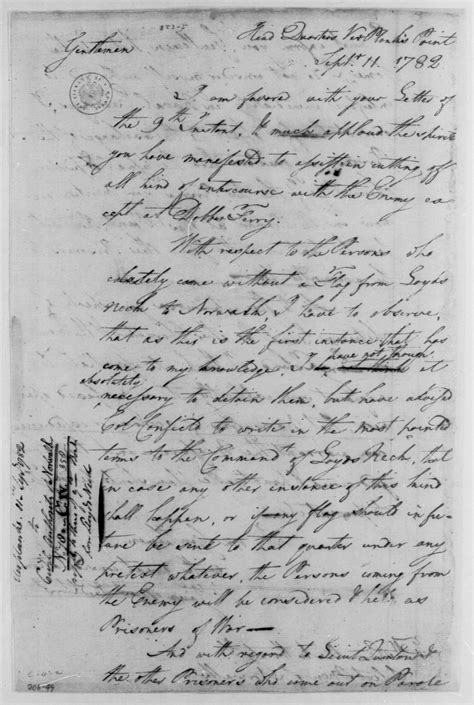 Head Quarters Ver Plank's Point
Gentlemen
Sept. 11. 1782
I am favored with your Letter of
the 9th Instant, & much applaud the spirit
you have manifested to assist in cutting off
all kind of intercourse with the Enemy ex
cept at Dobbs Ferry.
With respect to the Persons who
lately came without a Flag from Loyds
Neck to Norwalk, I have to observe,
that as this is the first instance that has
come to my knowledge I have not though
it
absolutely
necessary to detain them, but have advised
Col Canfield to write in the most pointed
terms to the Command of Loyds Neck, that
in case any other instance of this kind
shall happen, or if any flag should in fu-
ture be sent to that quarter under any
pretext whatever, the Persons coming from
the Enemy will be considered & held as
Prisoners of War—
And with regard to Lieut &
the other Prisoners who came out on Parole
206-99